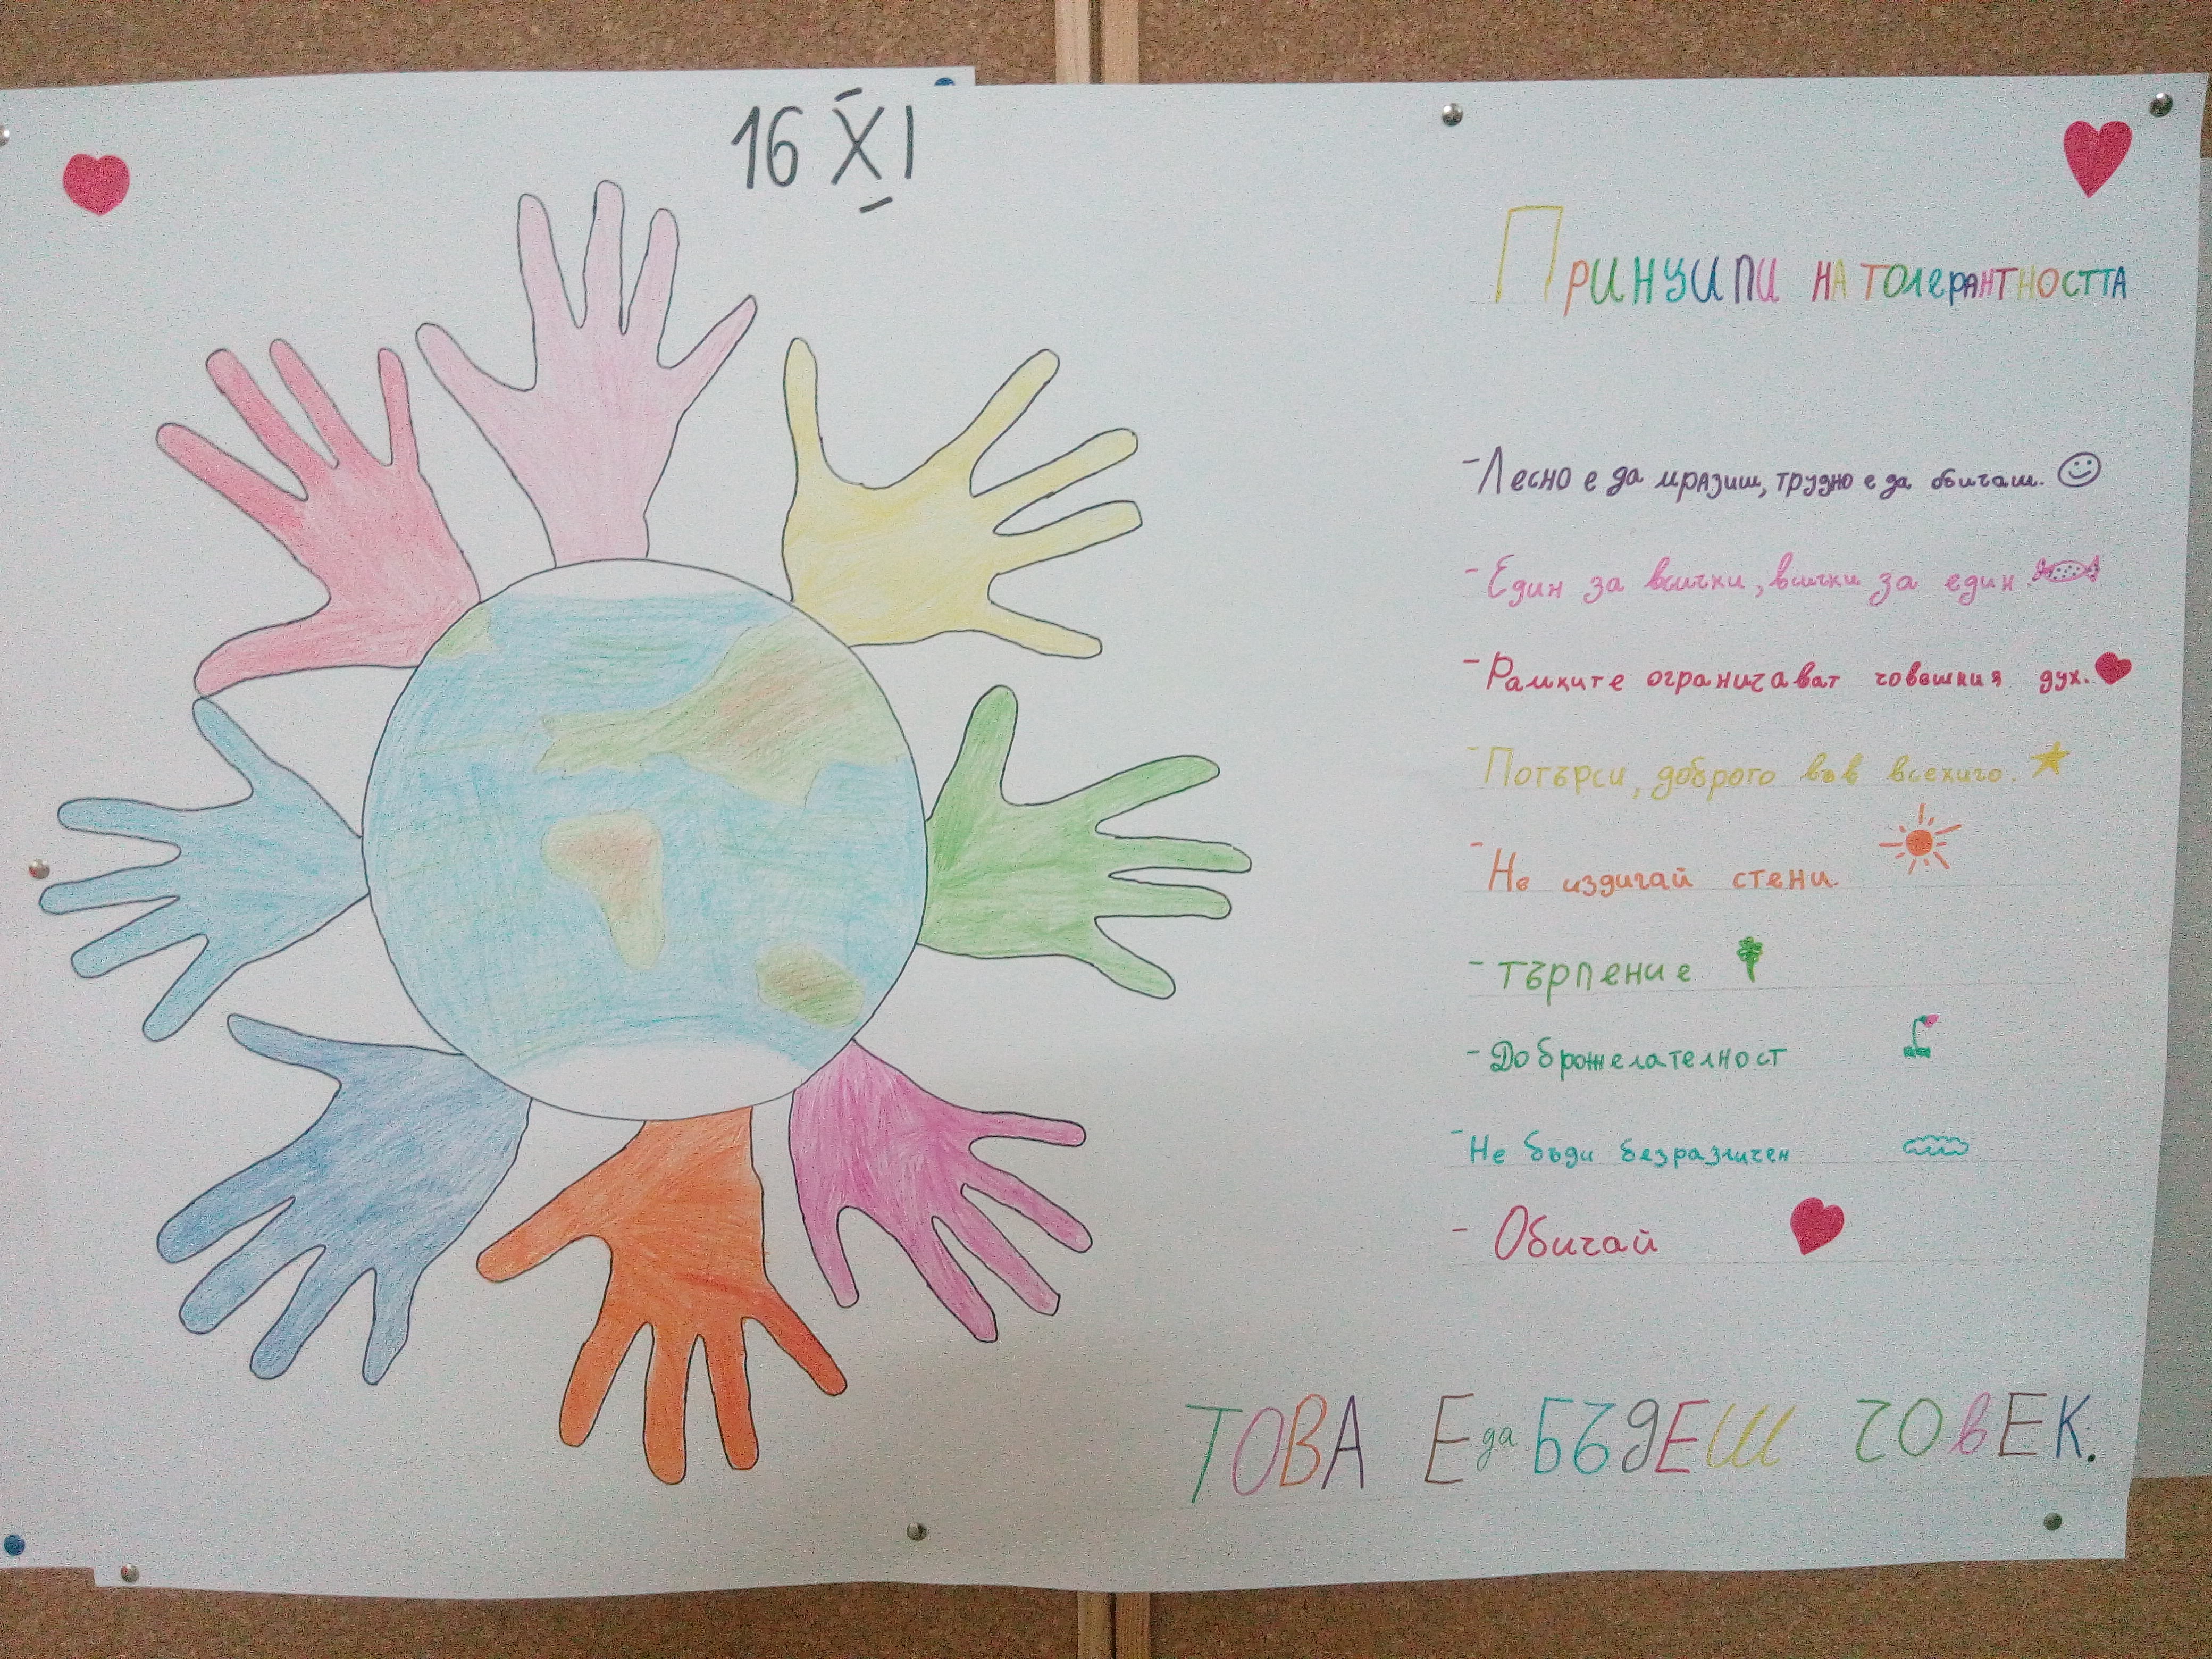 16 XI
Принципи на толерантността
- Лесно е да мразиш, трудно е да обичаш.
- Един за всички, всички за един.
- Рамките ограничават човешкия дух.
- Потърси, доброто във всекиго.
- Не издигай стени.
- търпение
- Доброжелателност
- Не бъди безразличен
- Обичай
ТОВА Е да БЪДЕШ ЧОВЕК.